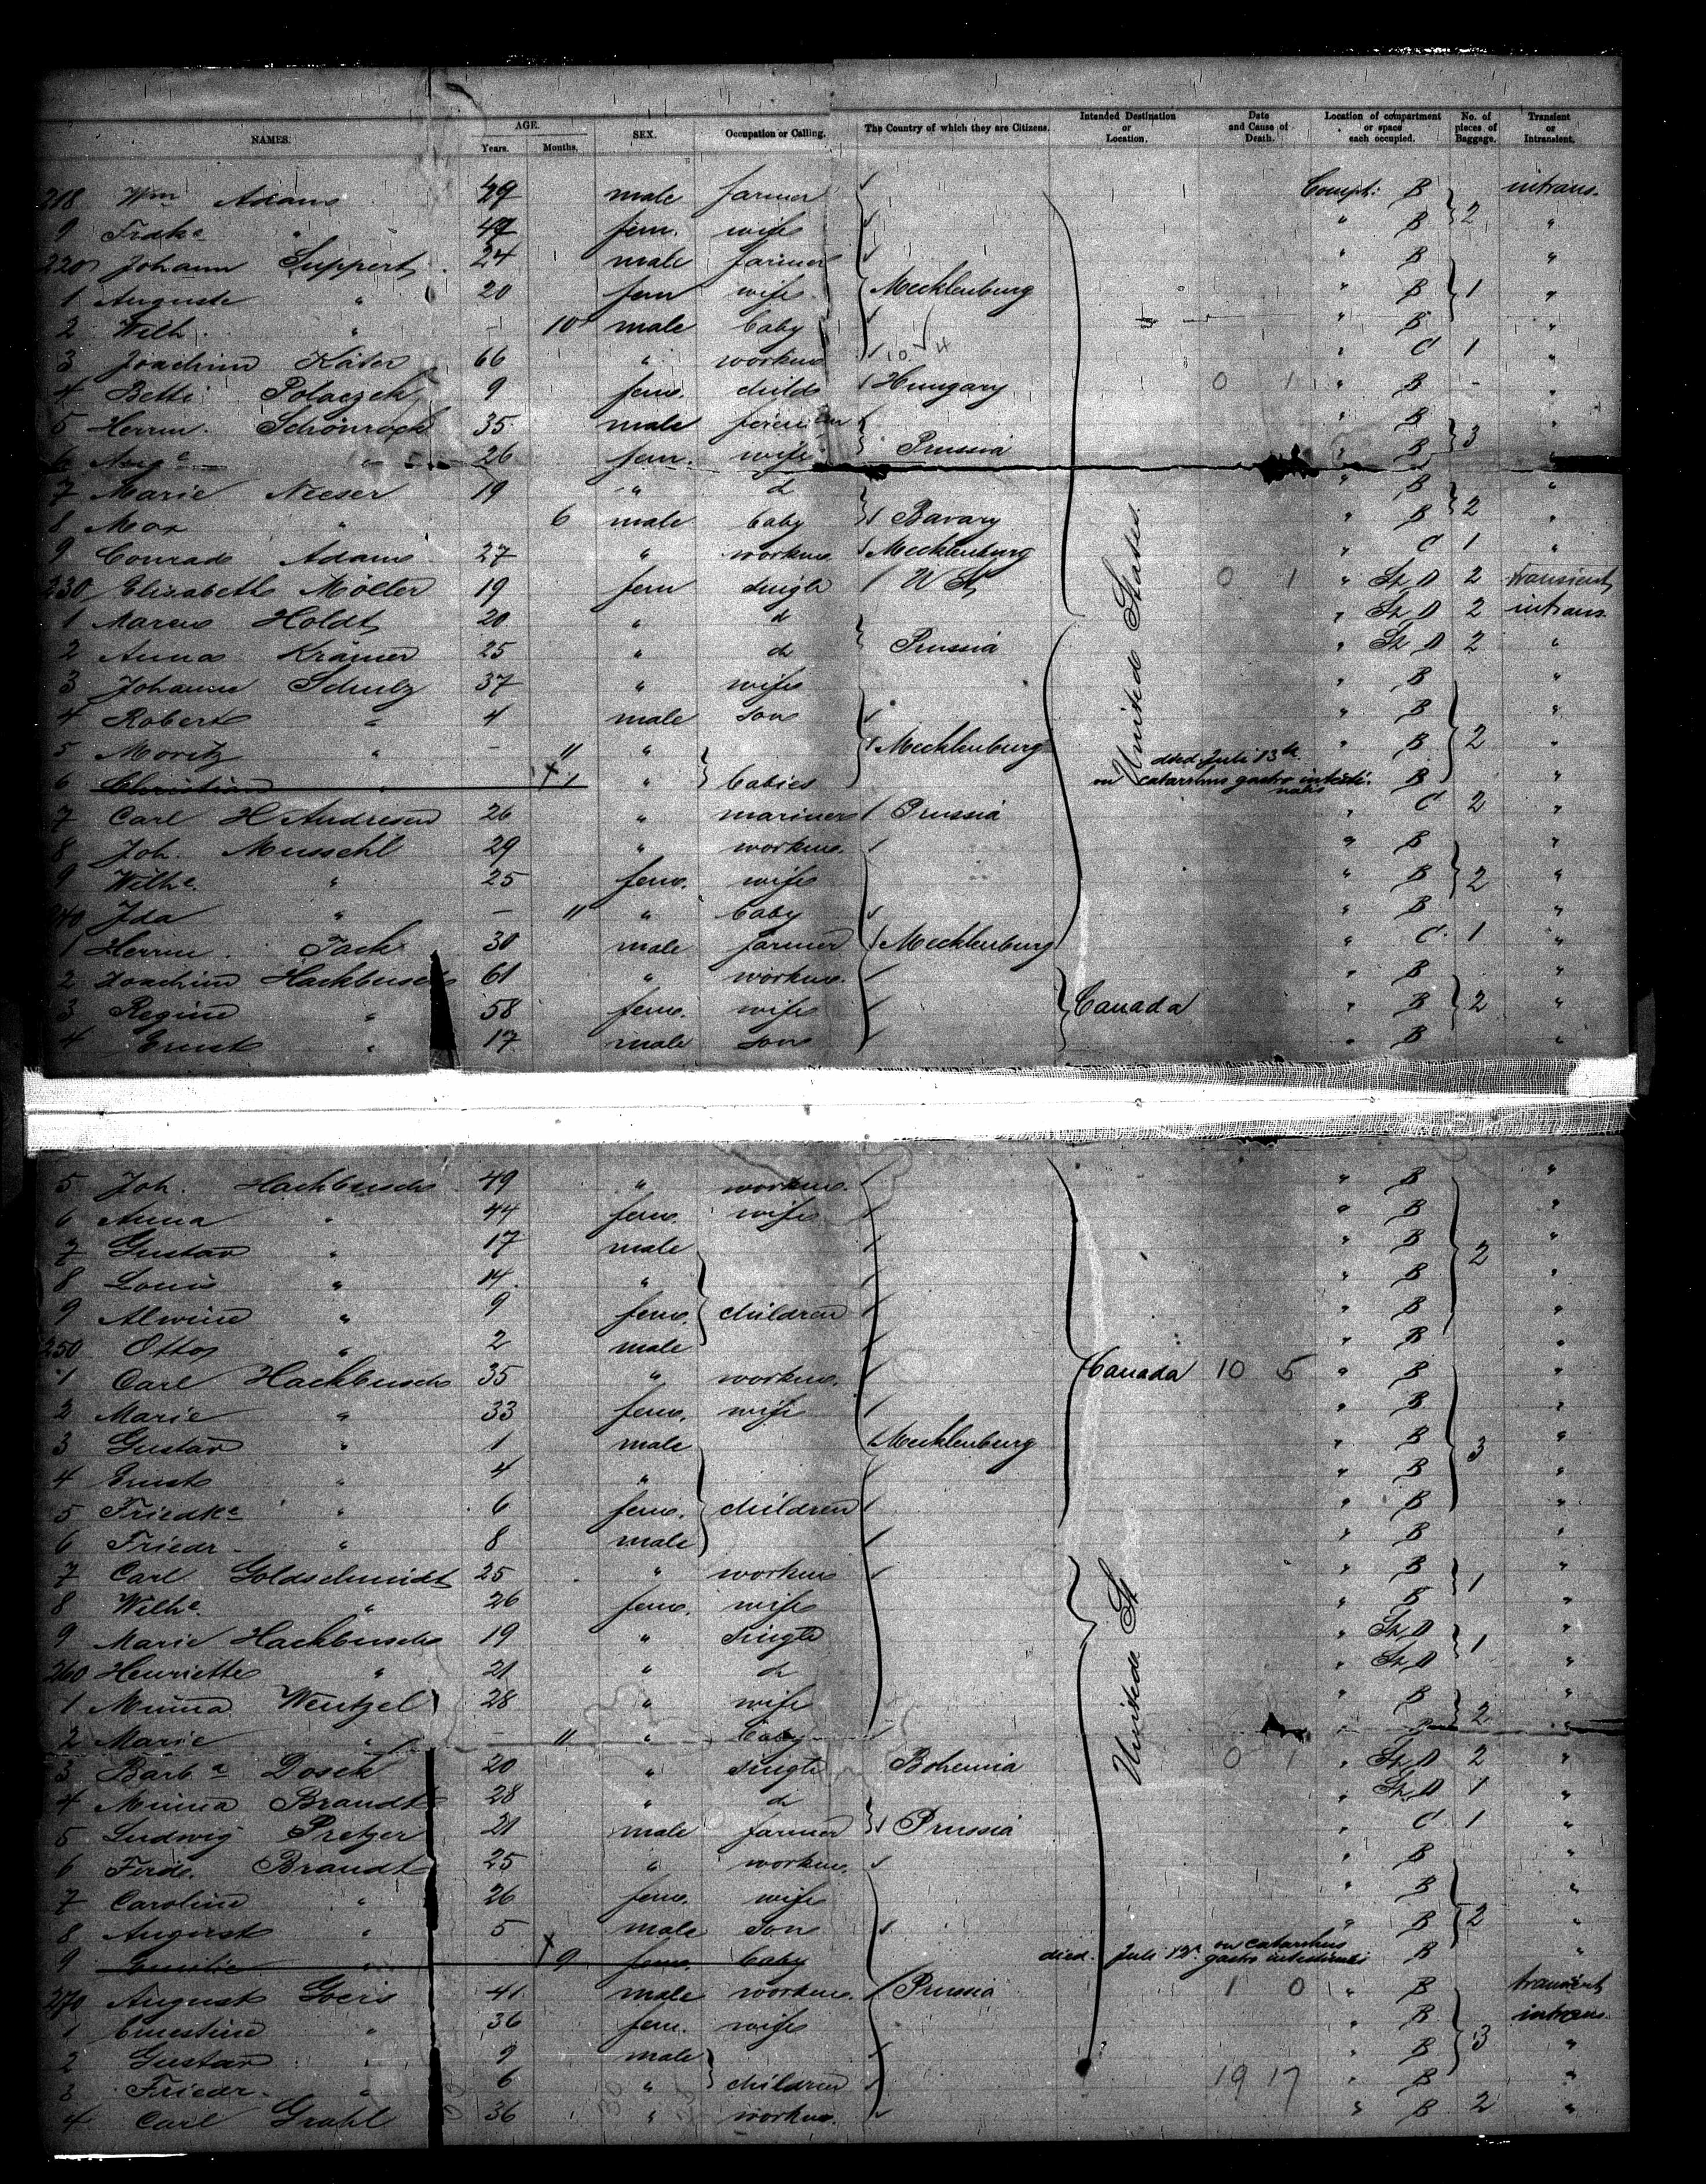 NAMES. AGE. Years. Months. SEX. Occupation or Calling. The Country of which they are Citizens. Intended Destination or Location. Date and Cause of Death. Location of compartment or space each occupied. No. of pieces of Baggage. Transient or Intransient.
218 Wm Adams 49 male farmer Compt: B 2 intrans.
9 Fridke " 47 fem. wife " B "
220 Johann Suppert 24 male farmer " B "
1 Auguste " 20 fem wife Mecklenburg " B 1 "
2 Wilh. " - 10 male baby " B "
3 Joachim Käter 66 " workm 10 4 " C 1 "
4 Betti Polaczek 9 fem. child Hungary 0 1 " B - "
5 Herrm. Schönrock 35 male " B "
6 Auge " 26 fem. wife Prussia " B 3 "
7 Marie Nieser 19 " d " B "
8 Max " 6 male baby Bavary " B 2 "
9 Conrad Adams 27 " workm Mecklenburg " C 1 "
230 Elisabeth Möller 19 fem single U St, 0 1 " St, D 2 transient
1 Marcus Holdt 20 " d United States. " St, D 2 intrans.
2 Anna Krämer 25 " d Prussia " St, D 2 "
3 Johanne Schulz 37 " wife " B "
4 Robert " 4 male son " B "
5 Moritz " - 11 " Mecklenburg " B 2 "
6 Christian " 1 " babies died Juli 13th on catarrhus gastro intestinalis B "
7 Carl H Andresen 26 " mariner Prussia " C 2 "
8 Joh. Musschl 29 " workm. " B "
9 Wilhe. " 25 fem. wife " B 2 "
240 Ida " - 11 " baby " B "
1 Herrm. Tack 30 male farmer Mecklenburg " C 1 "
2 Joachim Hackbusch 61 " workm. " B "
3 Regine " 58 fem. wife Canada " B 2 "
4 Ernst " 17 male son " B "
5 Joh. Hackbusch 49 " workm. " B "
6 Anna " 44 fem. wife " B "
7 Gustav " 17 male " B 2 "
8 Louis " 14 " " B "
9 Alwine " 9 fem. children " B "
250 Otto " 2 male " B "
1 Carl Hackbusch 35 " workm. Canada 10 5 " B "
2 Marie " 33 fem. wife " B "
3 Gustav " 1 male Mecklenburg " B 3 "
4 Ernst " 4 " " B "
5 Friedke " 6 fem. children " B "
6 Friedr. " 8 male " B "
7 Carl Goldschmidt 25 " workm " B 1 "
8 Wilhe. " 26 fem. wife " B "
9 Marie Hackbusch 19 " single United St " St, D 1 "
260 Henriette " 21 " d " St, D "
1 Minna Wentzel 28 " wife " B 2 "
2 Marie " - 11 " baby " B "
3 Barba Dosch 20 " single Bohemia 0 1 " St, D 2 "
4 Minna Brandt 28 " d " St, D 1 "
5 Ludwig Pretzer 21 male farmer Prussia " C 1 "
6 Ferd. Brandt 25 " workm. " B "
7 Caroline " 26 fem. wife " B "
8 August " 5 male son " B 2 "
9 Emilie " 9 fem. baby died Juli 12. on catarrhus gastro intestinalis B "
270 August Goers 41 male workm. Prussia 1 0 " B transient
1 Ernestine " 36 fem. wife " B intrans.
2 Gustav " 9 male " B 3 "
3 Friedr. " 6 " children 19 17 " B "
4 Carl Grahl 36 " workm. " B 2 "